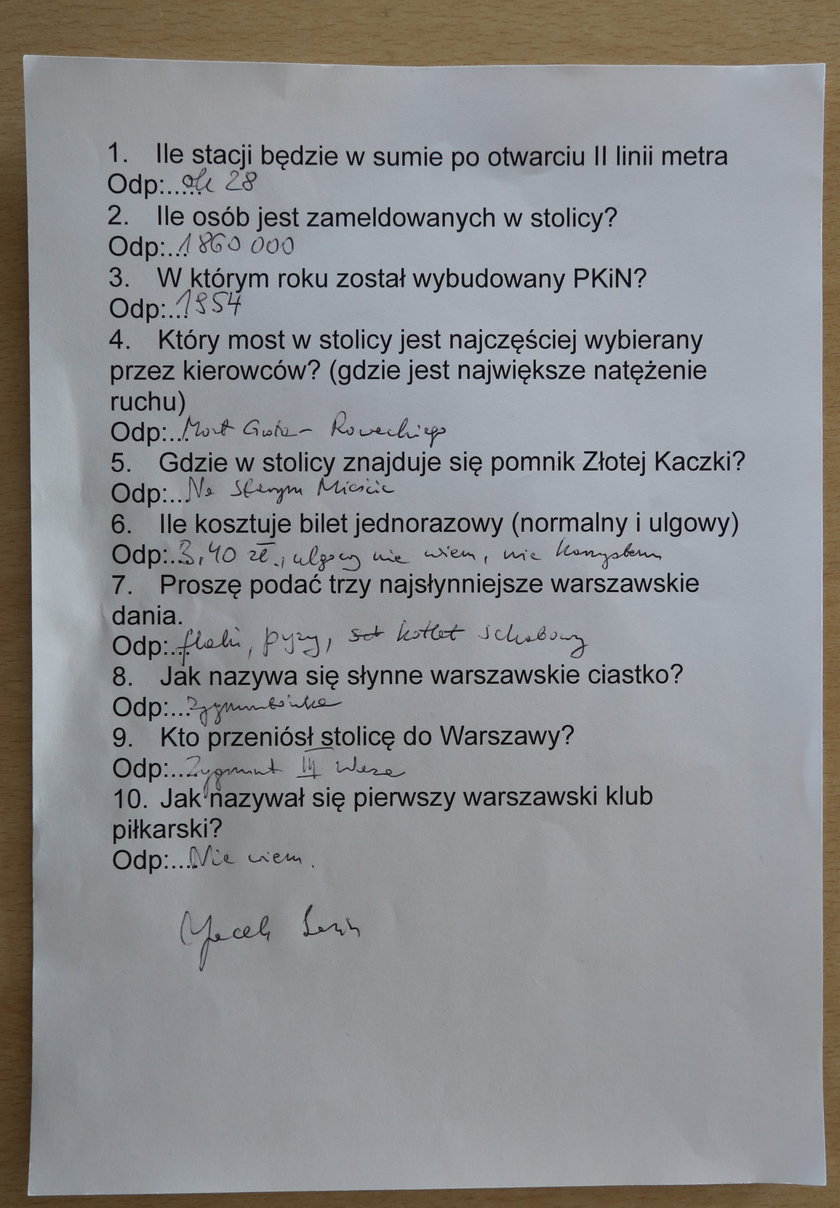 1. Ile stacji będzie w sumie po otwarciu II linii metra
Odp:..... ok 28
2. Ile osób jest zameldowanych w stolicy?
Odp:... 1 860 000
3. W którym roku został wybudowany PKiN?
Odp:... 1954
4. Który most w stolicy jest najczęściej wybierany
przez kierowców? (gdzie jest największe natężenie
ruchu)
Odp:... Most Grota - Roweckiego
5. Gdzie w stolicy znajduje się pomnik Złotej Kaczki?
Odp:... Na Starym Mieście
6. Ile kosztuje bilet jednorazowy (normalny i ulgowy)
Odp:... 3,40 zł., ulgowy nie wiem, nie korzystam
7. Proszę podać trzy najsłynniejsze warszawskie
dania.
Odp:... flaki, pyzy, kotlet schabowy
8. Jak nazywa się słynne warszawskie ciastko?
Odp:... Zygmuntówka
9. Kto przeniósł stolicę do Warszawy?
Odp:... Zygmunt III Waza
10. Jak nazywał się pierwszy warszawski klub
piłkarski?
Odp:.... Nie wiem.
Jacek